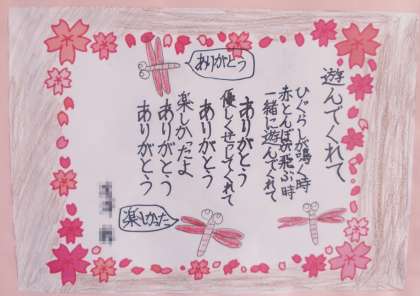 遊んでくれて
ひぐらしが鳴く時
赤とんぼが飛ぶ時
一緒に遊んでくれて
ありがとう
優しくせっしてくれて
ありがとう
楽しかったよ
ありがとう
ありがとう
ありがとう
楽しかった